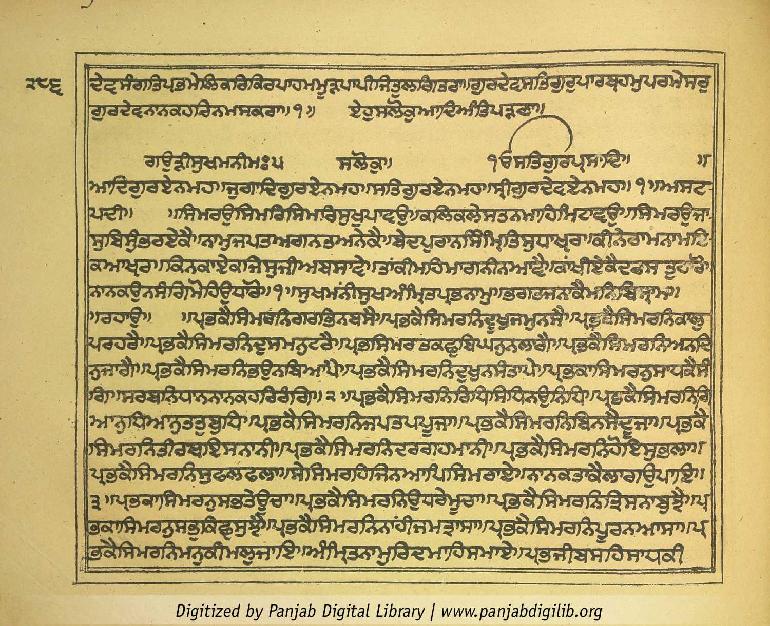 ੨੮੬
ਦੇਵਸੰਗਤਿਪ੍ਰਭਮੇਲਿਕਰਿਕਿਰਪਾਹਮਮੂੜਪਾਪੀਜਿਤੁਲਗਿਤਰਾ॥ਗੁਰਦੇਵਸਤਿਗੁਰੁਪਾਰਬ੍ਰਹਮੁਪਰਮੇਸਰੁ
ਗੁਰਦੇਵਨਾਨਕਹਰਿਨਮਸਕਰਾ॥੧॥ ਏਹੁਸਲੋਕੁਆਦਿਅੰਤਿਪੜਣਾ॥
ਗਉੜੀਸੁਖਮਨੀਮਃ੫ ਸਲੋਕੁ॥ ੴਸਤਿਗੁਰਪ੍ਰਸਾਦਿ॥ ॥
ਆਦਿਗੁਰਏਨਮਹ॥ਜੁਗਾਦਿਗੁਰਏਨਮਹ॥ਸਤਿਗੁਰਏਨਮਹ॥ਸ੍ਰੀਗੁਰਦੇਵਏਨਮਹ॥੧॥ਅਸਟ
ਪਦੀ॥ ॥ਸਿਮਰਉਸਿਮਰਿਸਿਮਰਿਸੁਖੁਪਾਵਉ॥ਕਲਿਕਲੇਸਤਨਮਾਹਿਮਿਟਾਵਉ॥ਸਿਮਰਉਜਾ
ਸੁਬਿਸੁੰਭਰਏਕੈ॥ਨਾਮੁਜਪਤਅਗਨਤਅਨੇਕੈ॥ਬੇਦਪੁਰਾਨਸਿੰਮ੍ਰਿਤਿਸੁਧਾਖ੍ਯਰ॥ਕੀਨੇਰਾਮਨਾਮਇ
ਕਆਖ੍ਯਰ॥ਕਿਨਕਾਏਕਜਿਸੁਜੀਅਬਸਾਵੈ॥ਤਾਕੀਮਹਿਮਾਗਨੀਨਆਵੈ॥ਕਾਂਖੀਏਕੈਦਰਸਤੁਹਾਰੋ॥
ਨਾਨਕਉਨਸੰਗਿਮੋਹਿਉਧਾਰੋ॥੧॥ਸੁਖਮਨੀਸੁਖਅੰਮ੍ਰਿਤਪ੍ਰਭਨਾਮੁ॥ਭਗਤਜਨਾਕੈਮਨਿਬਿਸ੍ਰਾਮ॥
॥ਰਹਾਉ॥ ॥ਪ੍ਰਭਕੈਸਿਮਰਨਿਗਰਭਿਨਬਸੈ॥ਪ੍ਰਭਕੈਸਿਮਰਨਿਦੂਖੁਜਮੁਨਸੈ॥ਪ੍ਰਭਕੈਸਿਮਰਨਿਕਾਲੁ
ਪਰਹਰੈ॥ਪ੍ਰਭਕੈਸਿਮਰਨਿਦੁਸਮਨੁਟਰੈ॥ਪ੍ਰਭਸਿਮਰਤਕਛੁਬਿਘਨੁਨਲਾਗੈ॥ਪ੍ਰਭਕੈਸਿਮਰਨਿਅਨਦਿ
ਨੁਜਾਗੈ॥ਪ੍ਰਭਕੈਸਿਮਰਨਿਭਉਨਬਿਆਪੈ॥ਪ੍ਰਭਕੈਸਿਮਰਨਿਦੁਖੁਨਸੰਤਾਪੈ॥ਪ੍ਰਭਕਾਸਿਮਰਨੁਸਾਧਕੈਸੰ
ਗਿ॥ਸਰਬਨਿਧਾਨਨਾਨਕਹਰਿਰੰਗਿ॥੨॥ਪ੍ਰਭਕੈਸਿਮਰਨਿਰਿਧਿਸਿਧਿਨਉਨਿਧਿ॥ਪ੍ਰਭਕੈਸਿਮਰਨਿਗਿ
ਆਨੁਧਿਆਨੁਤਤੁਬੁਧਿ॥ਪ੍ਰਭਕੈਸਿਮਰਨਿਜਪਤਪਪੂਜਾ॥ਪ੍ਰਭਕੈਸਿਮਰਨਿਬਿਨਸੈਦੂਜਾ॥ਪ੍ਰਭਕੈ
ਸਿਮਰਨਿਤੀਰਥਇਸਨਾਨੀ॥ਪ੍ਰਭਕੈਸਿਮਰਨਿਦਰਗਹਮਾਨੀ॥ਪ੍ਰਭਕੈਸਿਮਰਨਿਹੋਇਸੁਭਲਾ॥
ਪ੍ਰਭਕੈਸਿਮਰਨਿਸੁਫਲਫਲਾ॥ਸੇਸਿਮਰਹਿਜਿਨਆਪਿਸਿਮਰਾਏ॥ਨਾਨਕਤਾਕੈਲਾਗਉਪਾਇ॥
੩॥ਪ੍ਰਭਕਾਸਿਮਰਨੁਸਭਤੇਊਚਾ॥ਪ੍ਰਭਕੈਸਿਮਰਨਿਉਧਰੇਮੂਚਾ॥ਪ੍ਰਭਕੈਸਿਮਰਨਿਤ੍ਰਿਸਨਾਬੁਝੈ॥ਪ੍ਰ
ਭਕਾਸਿਮਰਨੁਸਭੁਕਿਛੁਸੁਝੈ॥ਪ੍ਰਭਕੈਸਿਮਰਨਿਨਾਹੀਜਮਤ੍ਰਾਸਾ॥ਪ੍ਰਭਕੈਸਿਮਰਨਿਪੂਰਨਆਸਾ॥ਪ੍ਰ
ਭਕੈਸਿਮਰਨਿਮਨੁਕੀਮਲੁਜਾਇ॥ਅੰਮ੍ਰਿਤਨਾਮੁਰਿਦਮਾਹਿਸਮਾਏ॥ਪ੍ਰਭਜੀਬਸਹਿਸਾਧਕੀ
Digitized by Panjab Digital Library | www.panjabdigilib.org